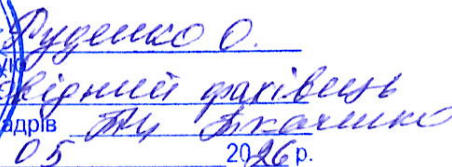 Руденко О.
відний фахівець
адрів Ткаченко
05 2026 р.